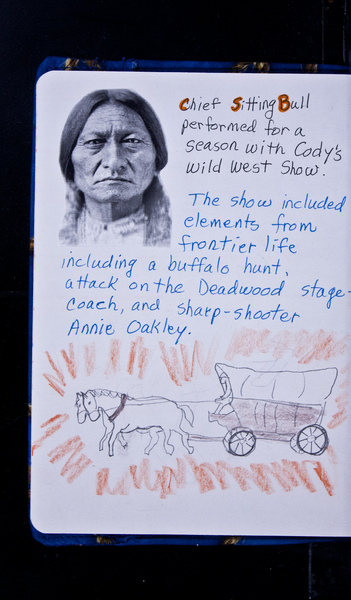 Chief Sitting Bull
performed for a
season with Cody's
Wild West Show.
The show included
elements from
frontier life
including a buffalo hunt,
attack on the Deadwood stage-
coach, and sharp-shooter
Annie Oakley.